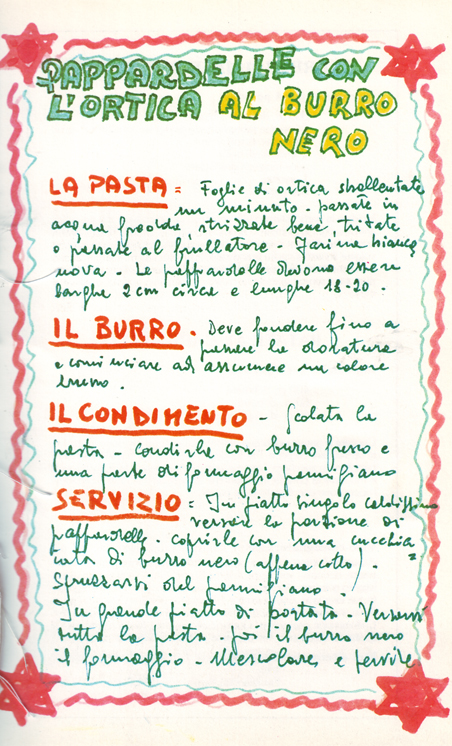 PAPPARDELLE CON
L'ORTICA AL BURRO
NERO
LA PASTA = Foglie di ortica sbollentate
un minuto - passate in
acqua fredda, strizzate bene, tritate
o passate al frullatore - Farina bianca
uova - Le pappardelle devono essere
larghe 2 cm circa e lunghe 18-20.
IL BURRO. Deve fondere fino a
perdere la doratura
e cominciare ad assumere un colore
bruno.
IL CONDIMENTO - Scolata la
pasta - condirla con burro fresco e
una parte di formaggio parmigiano
SERVIZIO = In piatto singolo caldissimo
versare la porzione di
pappardelle - coprirle con una cucchia
iata di burro nero (appena cotto).
Spruzzarvi del parmigiano.
In grande piatto di portata - Versarvi
tutta la pasta - poi il burro nero
il formaggio - Mescolare e servire